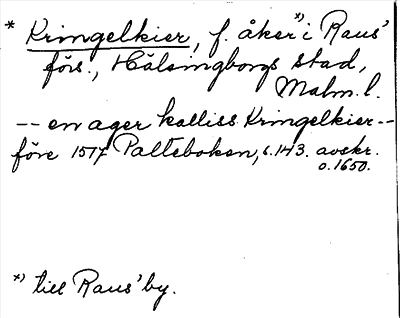 * Kringelkier, f. åker *) i Raus'
förs., Hälsingborgs stad,
Malm. l.
-- en ager kalliss Kringelkier --
före 1517 Palteboken, s. 143. avskr.
o. 1650.
*) till Raus' by.